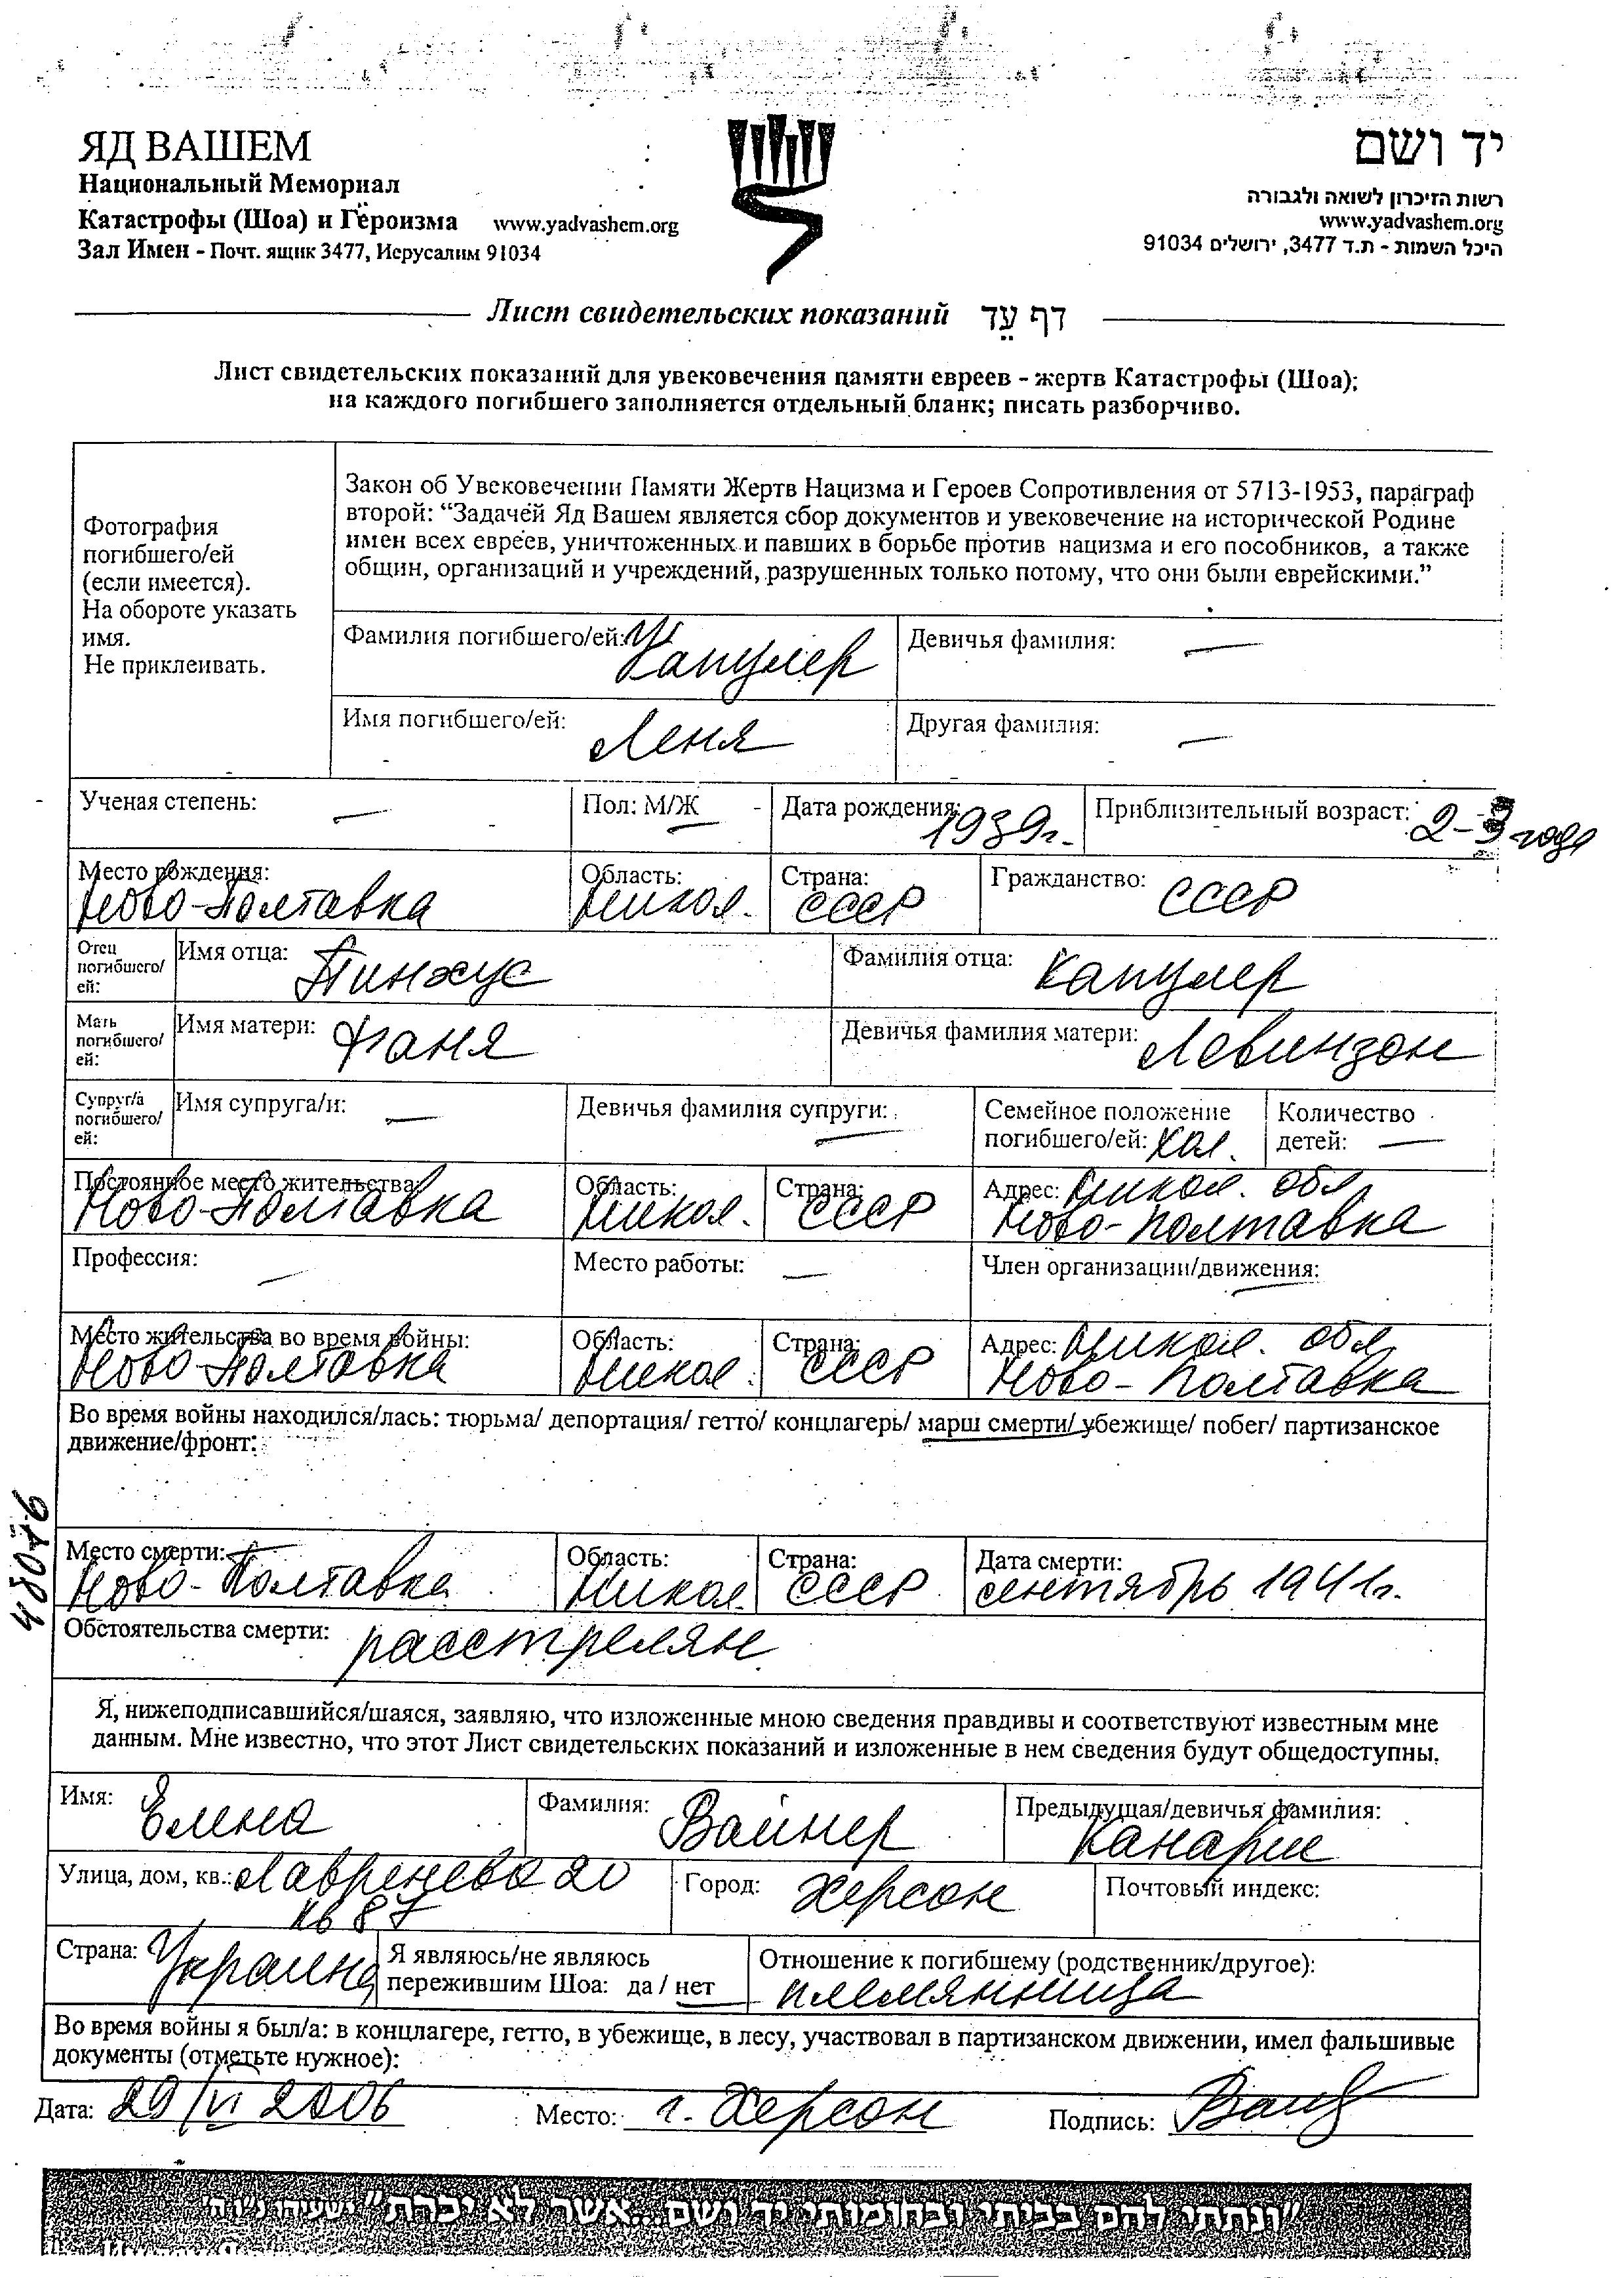 ЯД ВАШЕМ
Национальный Мемориал
Катастрофы (Шоа) и Героизма www.yadvashem.org
Зал Имен - Почт. ящик 3477, Иерусалим 91034
יד ושם
רשות הזיכרון לשואה ולגבורה
www.yadvashem.org
היכל השמות - ת.ד 3477, ירושלים 91034
Лист свидетельских показаний דף עֵד
Лист свидетельских показаний для увековечения памяти евреев - жертв Катастрофы (Шоа);
на каждого погибшего заполняется отдельный бланк; писать разборчиво.
Фотография
погибшего/ей
(если имеется).
На обороте указать
имя.
Не приклеивать.
Закон об Увековечении Памяти Жертв Нацизма и Героев Сопротивления от 5713-1953, параграф
второй: “Задачей Яд Вашем является сбор документов и увековечение на исторической Родине
имен всех евреев, уничтоженных и павших в борьбе против нацизма и его пособников, а также
общин, организаций и учреждений, разрушенных только потому, что они были еврейскими.”
Фамилия погибшего/ей: Капулер Девичья фамилия: —
Имя погибшего/ей: Леня Другая фамилия: —
Ученая степень: — Пол: М/Ж Дата рождения: 1939г. Приблизительный возраст: 2-3 года
Место рождения: Ново-Полтавка Область: Никол. Страна: СССР Гражданство: СССР
Отец погибшего/ей: Имя отца: Пинхус Фамилия отца: Капулер
Мать погибшего/ей: Имя матери: Фаня Девичья фамилия матери: Левинзон
Супруг/а погибшего/ей: Имя супруга/и: — Девичья фамилия супруги: — Семейное положение погибшего/ей: хол. Количество детей: —
Постоянное место жительства: Ново-Полтавка Область: Никол. Страна: СССР Адрес: Никол. обл. Ново-Полтавка
Профессия: — Место работы: — Член организации/движения: —
Место жительства во время войны: Ново-Полтавка Область: Никол. Страна: СССР Адрес: Никол. обл. Ново-Полтавка
Во время войны находился/лась: тюрьма/ депортация/ гетто/ концлагерь/ марш смерти/ убежище/ побег/ партизанское
движение/фронт:
Место смерти: Ново-Полтавка Область: Никол. Страна: СССР Дата смерти: сентябрь 1941г.
Обстоятельства смерти: расстрелян
Я, нижеподписавшийся/шаяся, заявляю, что изложенные мною сведения правдивы и соответствуют известным мне
данным. Мне известно, что этот Лист свидетельских показаний и изложенные в нем сведения будут общедоступны.
Имя: Елена Фамилия: Вайнер Предыдущая/девичья фамилия: Канарик
Улица, дом, кв.: Лавренева 20 кв 87 Город: Херсон Почтовый индекс:
Страна: Украина Я являюсь/не являюсь пережившим Шоа: да / нет Отношение к погибшему (родственник/другое): племянница
Во время войны я был/а: в концлагере, гетто, в убежище, в лесу, участвовал в партизанском движении, имел фальшивые
документы (отметьте нужное):
Дата: 29/VI 2006 Место: г. Херсон Подпись:
"ונתתי להם בביתי ובחומותי יד ושם...אשר לא יכרת"